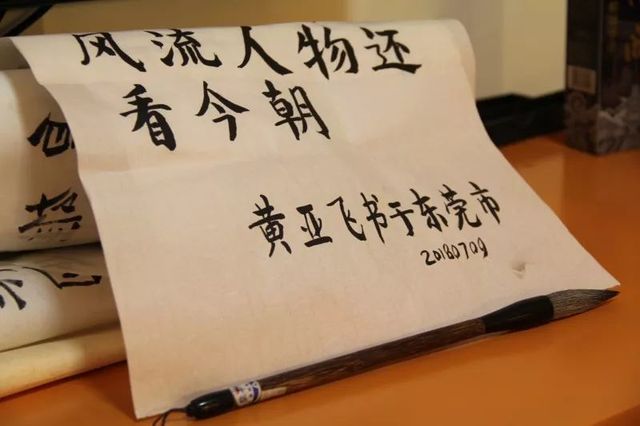 风流人物还
看今朝
黄亚飞书于东莞市
20180709